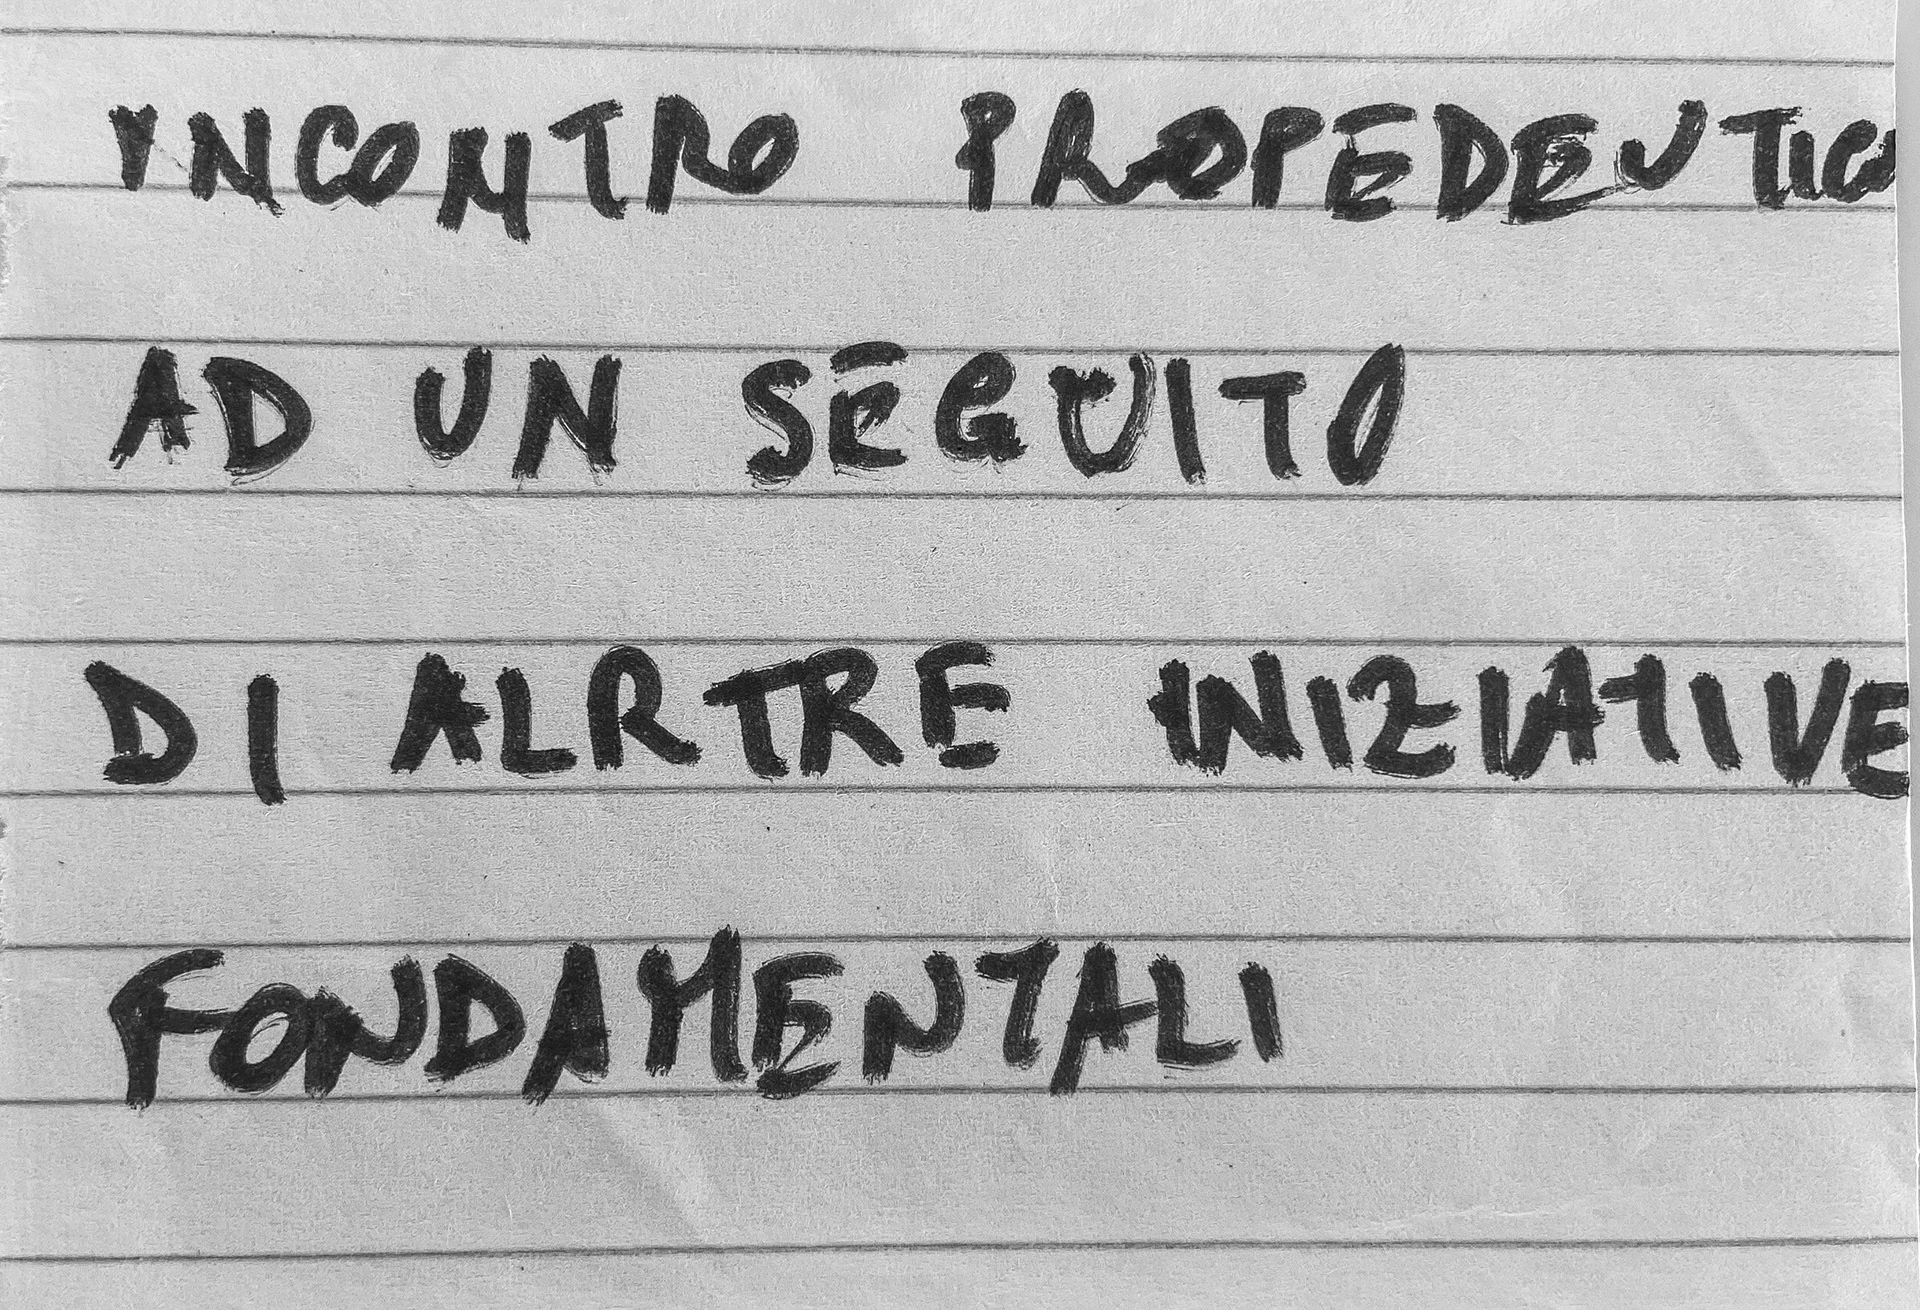 INCONTRO PROPEDEUTICO
AD UN SEGUITO
DI ALRTRE INIZIATIVE
FONDAMENTALI